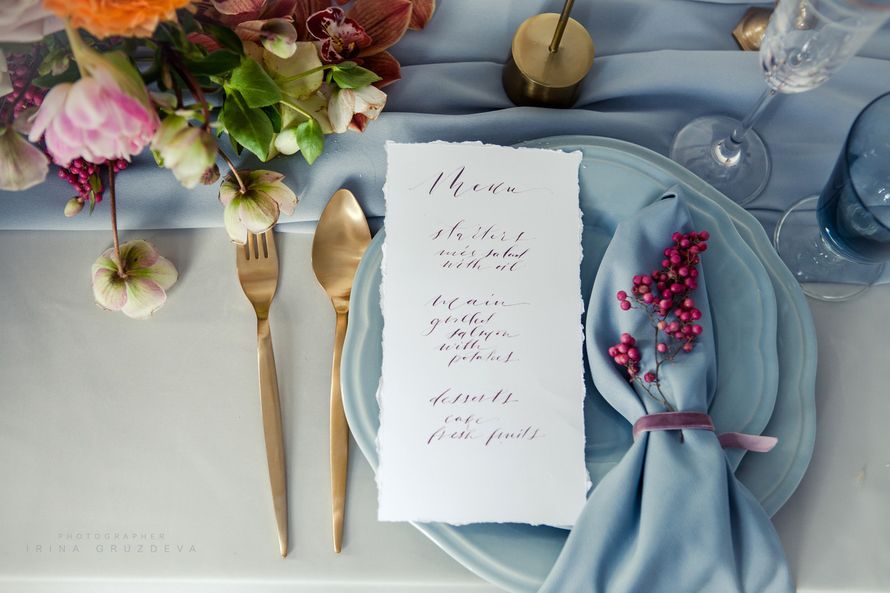 Menu
starters
mix salad
with oil
main
grilled
salmon
with
potatoes
desserts
cafe
fresh fruits
PHOTOGRAPHER
IRINA GRUZDEVA